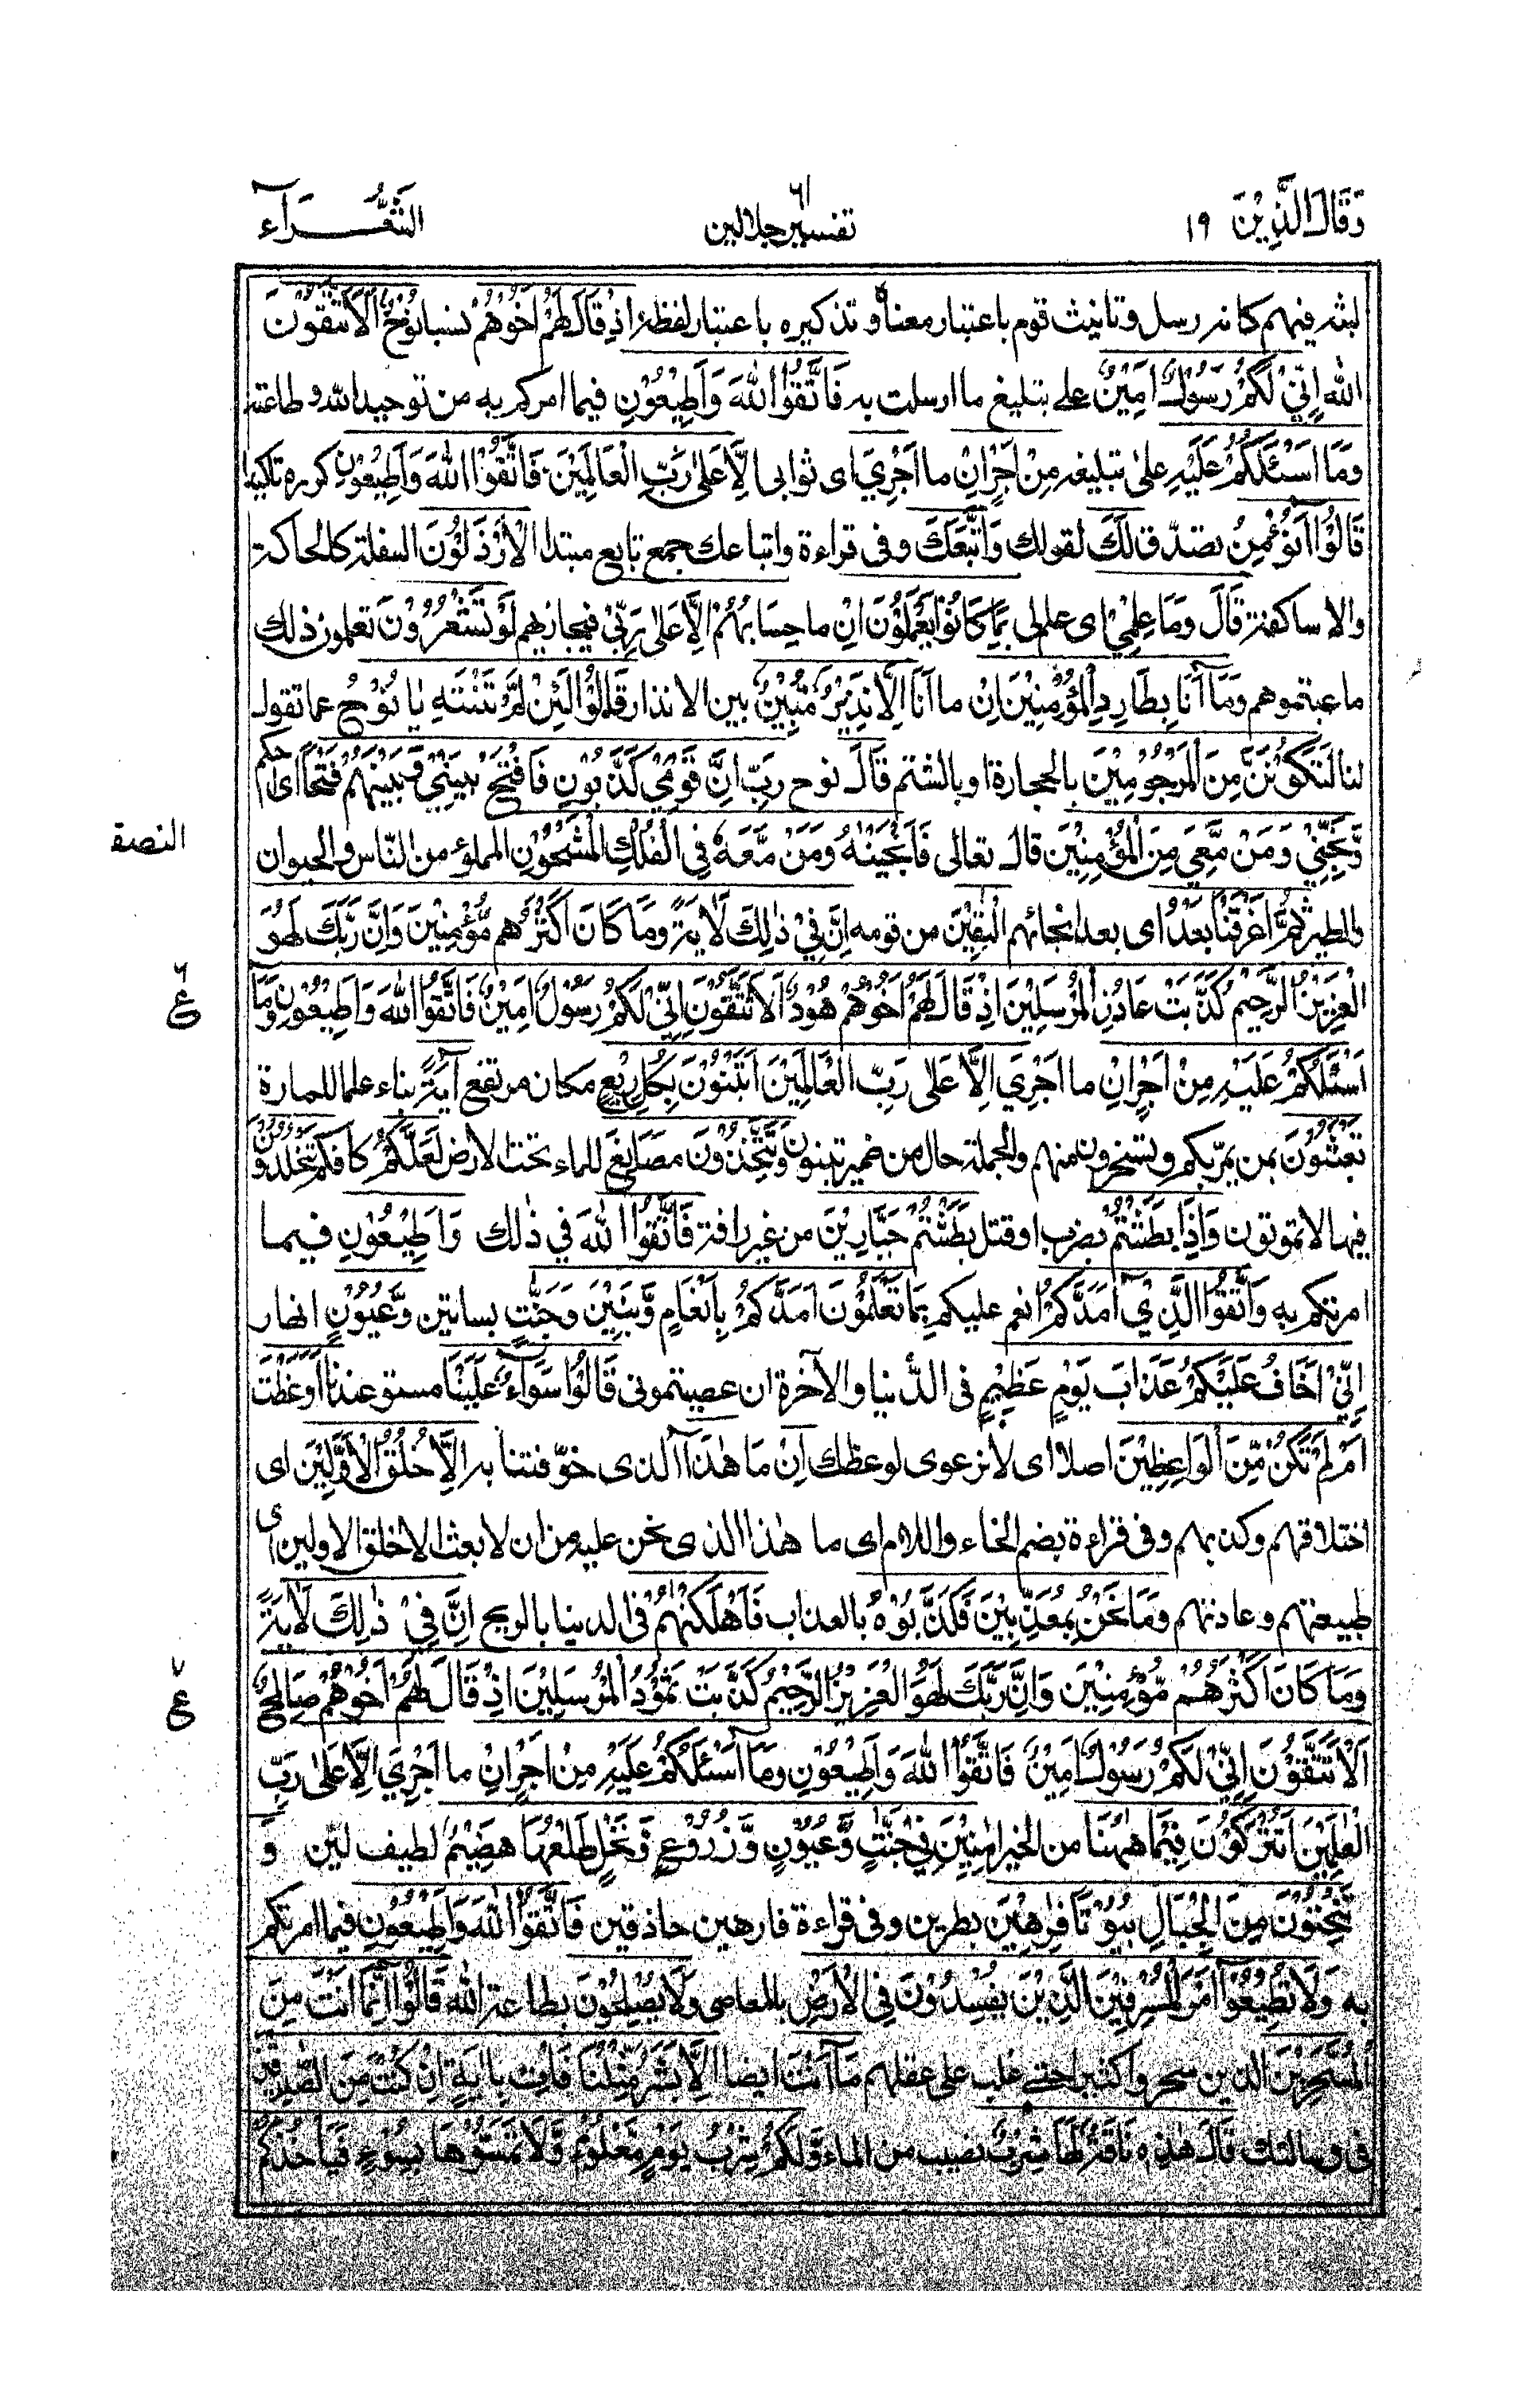 وَقَالَ الَّذِيْنَ ١٩
٦١
تفسير جلالين
الشُّعَرَآء
لبثه فيهم كانه رسل وتانيث قوم باعتبار معناه وتذكيره باعتبار لفظه اِذْ قَالَ لَهُمْ اَخُوْهُمْ نسبا نُوْحٌ اَلَا تَتَّقُوْنَ
الله اِنِّيْ لَكُمْ رَسُوْلٌ اَمِيْنٌ على تبليغ ما ارسلت به فَاتَّقُوا اللّٰهَ وَاَطِيْعُوْنِ فيما امركم به من توحيد الله وطاعته
وَمَا اَسْئَلُكُمْ عَلَيْهِ على تبليغه مِنْ اَجْرٍ اِنْ ما اَجْرِيَ اى ثوابى اِلَّا عَلٰى رَبِّ الْعَالَمِيْنَ فَاتَّقُوا اللّٰهَ وَاَطِيْعُوْنِ كرره تاكيدا
قَالُوْا اَنُؤْمِنُ نصدّق لَكَ لقولك وَاتَّبَعَكَ وفى قراءة واتباعك جمع تابع مبتدا الْاَرْذَلُوْنَ السفلة كالحاكة
والاساكفة قَالَ وَمَا عِلْمِيْ اى علم لى بِمَا كَانُوْا يَعْمَلُوْنَ اِنْ ما حِسَابُهُمْ اِلَّا عَلٰى رَبِّيْ فيجازيهم لَوْ تَشْعُرُوْنَ تعلمون ذلك
ما عبتموهم وَمَا اَنَا بِطَارِدِ الْمُؤْمِنِيْنَ اِنْ ما اَنَا اِلَّا نَذِيْرٌ مُّبِيْنٌ بين الانذار قَالُوْا لَئِنْ لَّمْ تَنْتَهِ يٰا نُوْحُ عما تقول
لنا لَتَكُوْنَنَّ مِنَ الْمَرْجُوْمِيْنَ بالحجارة او بالشتم قَالَ نوح رَبِّ اِنَّ قَوْمِيْ كَذَّبُوْنِ فَافْتَحْ بَيْنِيْ وَبَيْنَهُمْ فَتْحًا اى احكم
وَّنَجِّنِيْ وَمَنْ مَّعِيَ مِنَ الْمُؤْمِنِيْنَ قال تعالى فَاَنْجَيْنٰهُ وَمَنْ مَّعَهٗ فِي الْفُلْكِ الْمَشْحُوْنِ المملوء من النّاس والحيوان
والطير ثُمَّ اَغْرَقْنَا بَعْدُ اى بعد انجائهم الْبٰقِيْنَ من قومه اِنَّ فِيْ ذٰلِكَ لَاٰيَةً وَمَا كَانَ اَكْثَرُهُمْ مُّؤْمِنِيْنَ وَاِنَّ رَبَّكَ لَهُوَ
الْعَزِيْزُ الرَّحِيْمُ كَذَّبَتْ عَادُنِ الْمُرْسَلِيْنَ اِذْ قَالَ لَهُمْ اَخُوْهُمْ هُوْدٌ اَلَا تَتَّقُوْنَ اِنِّيْ لَكُمْ رَسُوْلٌ اَمِيْنٌ فَاتَّقُوا اللّٰهَ وَاَطِيْعُوْنِ وَمَا
اَسْئَلُكُمْ عَلَيْهِ مِنْ اَجْرٍ اِنْ ما اَجْرِيَ اِلَّا عَلٰى رَبِّ الْعَالَمِيْنَ اَتَبْنُوْنَ بِكُلِّ رِيْعٍ مكان مرتفع اٰيَةً بناء علما للمارة
تَعْبَثُوْنَ بمن يمرّ بكم وتسخرون منهم والجملة حال من ضمير تبنون وَتَتَّخِذُوْنَ مَصَانِعَ للماء تحت الارض لَعَلَّكُمْ كانكم تَخْلُدُوْنَ
فيها لا تموتون وَاِذَا بَطَشْتُمْ بضرب او قتل بَطَشْتُمْ جَبَّارِيْنَ من غير رافة فَاتَّقُوا اللّٰهَ فى ذٰلك وَاَطِيْعُوْنِ فيما
امرتكم به وَاتَّقُوا الَّذِيْ اَمَدَّكُمْ انعم عليكم بِمَا تَعْلَمُوْنَ اَمَدَّكُمْ بِاَنْعَامٍ وَّبَنِيْنَ وَجَنّٰتٍ بساتين وَّعُيُوْنٍ انهار
اِنِّيْ اَخَافُ عَلَيْكُمْ عَذَابَ يَوْمٍ عَظِيْمٍ فى الدُّنيا والآخرة ان عصيتمونى قَالُوْا سَوَآءٌ عَلَيْنَا مستو عندنا اَوَعَظْتَ
اَمْ لَمْ تَكُنْ مِّنَ الْوَاعِظِيْنَ اصلا اى لا نرعوى لوعظك اِنْ مَا هٰذَا الذى خوّفتنا به اِلَّا خُلُقُ الْاَوَّلِيْنَ اى
اختلاقهم وكذبهم وفى قراءة بضم الخاء واللام اى ما هٰذا الذى نحن عليه من ان لا بعث الا خلق الاولين اى
طبيعتهم وعادتهم وَمَا نَحْنُ بِمُعَذَّبِيْنَ فَكَذَّبُوْهُ بالعذاب فَاَهْلَكْنٰهُمْ فى الدنيا بالريح اِنَّ فِيْ ذٰلِكَ لَاٰيَةً
وَمَا كَانَ اَكْثَرُهُمْ مُّؤْمِنِيْنَ وَاِنَّ رَبَّكَ لَهُوَ الْعَزِيْزُ الرَّحِيْمُ كَذَّبَتْ ثَمُوْدُ الْمُرْسَلِيْنَ اِذْ قَالَ لَهُمْ اَخُوْهُمْ صَالِحٌ
اَلَا تَتَّقُوْنَ اِنِّيْ لَكُمْ رَسُوْلٌ اَمِيْنٌ فَاتَّقُوا اللّٰهَ وَاَطِيْعُوْنِ وَمَا اَسْئَلُكُمْ عَلَيْهِ مِنْ اَجْرٍ اِنْ ما اَجْرِيَ اِلَّا عَلٰى رَبِّ
الْعٰلَمِيْنَ اَتُتْرَكُوْنَ فِيْمَا هٰهُنَا من الخير اٰمِنِيْنَ فِيْ جَنّٰتٍ وَّعُيُوْنٍ وَّزُرُوْعٍ وَّنَخْلٍ طَلْعُهَا هَضِيْمٌ لطيف ليّن وَ
تَنْحِتُوْنَ مِنَ الْجِبَالِ بُيُوْتًا فَرِهِيْنَ بطرين وفى قراءة فارهين حاذقين فَاتَّقُوا اللّٰهَ وَاَطِيْعُوْنِ فيما امرتكم
به وَلَا تُطِيْعُوْا اَمْرَ الْمُسْرِفِيْنَ الَّذِيْنَ يُفْسِدُوْنَ فِي الْاَرْضِ بالمعاصى وَلَا يُصْلِحُوْنَ بطاعة الله قَالُوْا اِنَّمَا اَنْتَ مِنَ
الْمُسَحَّرِيْنَ الذين سحروا كثيرا حتى غلب على عقلهم مَا اَنْتَ ايضا اِلَّا بَشَرٌ مِّثْلُنَا فَاْتِ بِاٰيَةٍ اِنْ كُنْتَ مِنَ الصّٰدِقِيْنَ
فى رسالتك قَالَ هٰذِهٖ نَاقَةٌ لَّهَا شِرْبٌ نصيب من الماء وَّلَكُمْ شِرْبُ يَوْمٍ مَّعْلُوْمٍ وَّلَا تَمَسُّوْهَا بِسُوْءٍ فَيَاْخُذَكُمْ
النصف
٦
ع
٧
ع